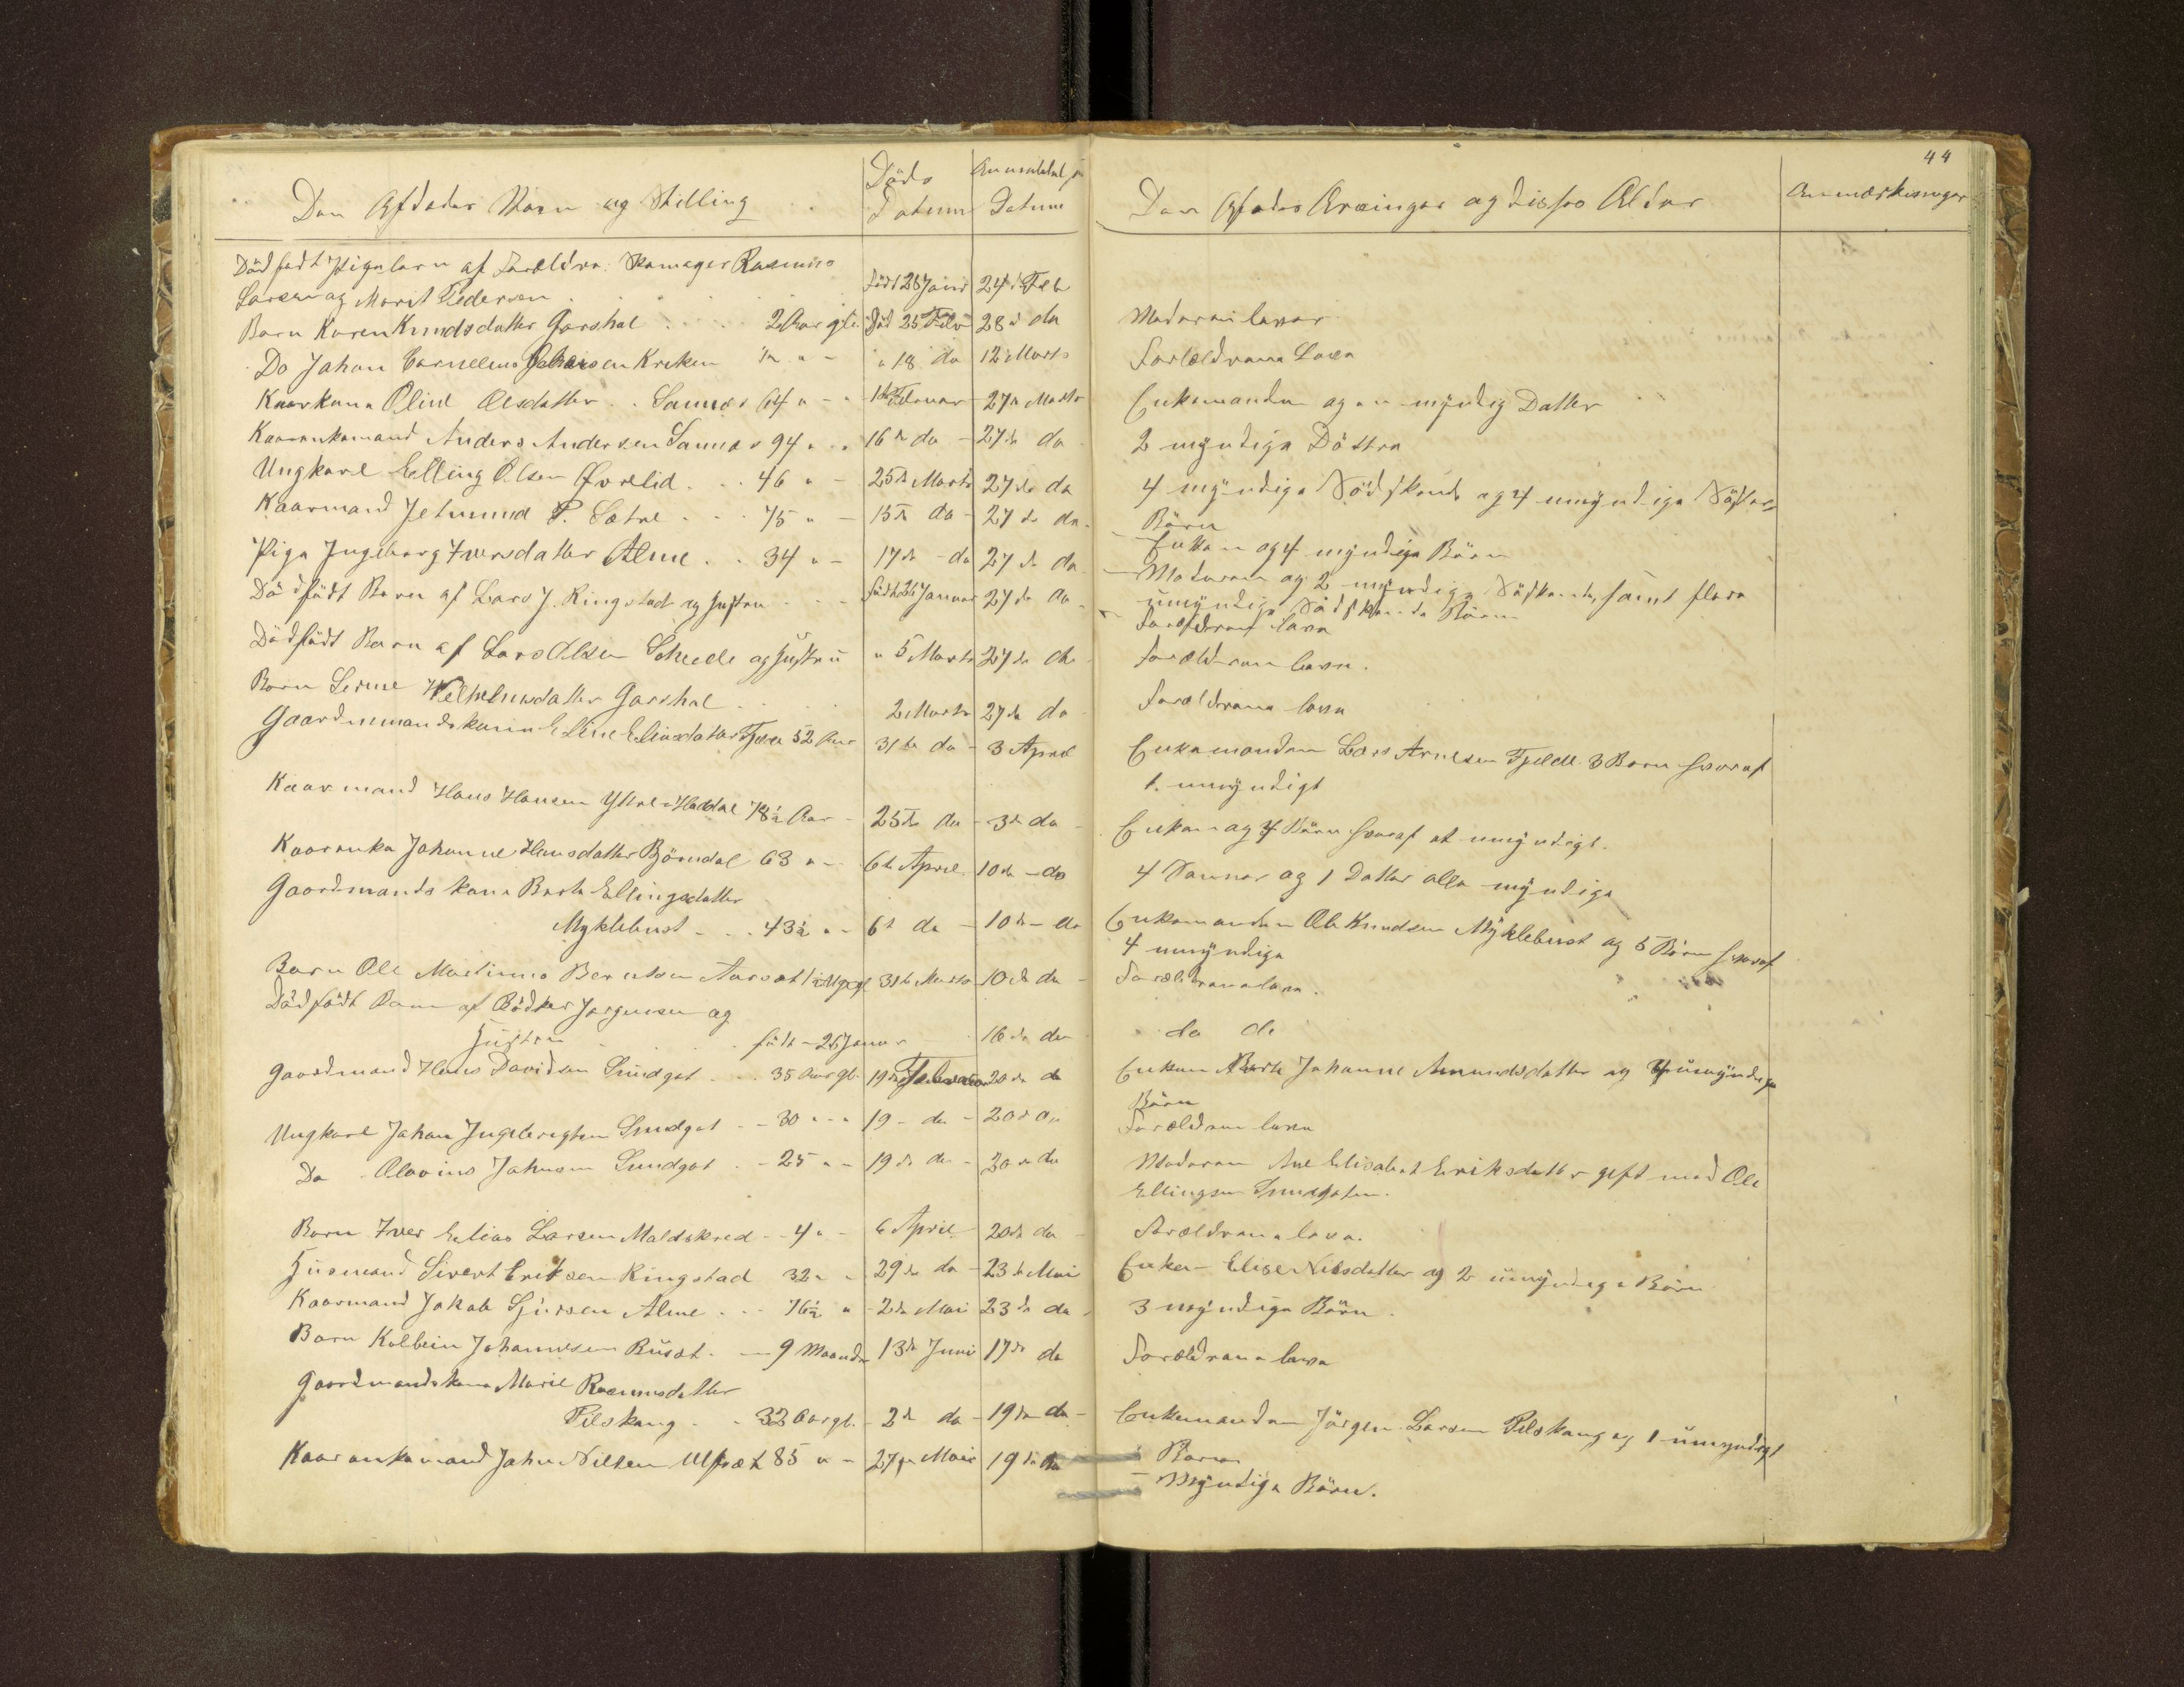 44
Den Afdødes Navn og Stilling
Døds Datum
Anmeldelses Datum
Den Afdødes Arvinger og disses Alder
Anmærkninger
Dødfødt Pigebarn af Forældre: Skomager Rasmus
Larsen og Marit Pedersen født 26 Januar 24de Feb
Barn Karen Knudsdatter Garshol 2 Aar gl. Død 25 Febr 28de do Moderen lever
Do Johan Cornelius Kriken 1/2 " - " 18 do 12 Marts Forældrene Leve
Kaarkone Oline Olsdatter Sannes 64 " - Februar 27de Marts Enkemanden og en myndig Datter
Kaarenkemand Anders Andersen Sannes 94 " - 16de do 27de do 2 myndige Døttre
Ungkarl Elling Olsen Øvrelid 46 " - 25de Marts 27de do 4 myndige Sødskende og 4 umyndige Søster
Børn
Kaarmand Jetmund P. Sætre 75 " - 15de do 27de do Enken og 4 myndige Børn
Pige Ingeborg Iversdatter Alme 34 " - 17de do 27de do Moderen og 2 myndige Sødskende, samt flere
umyndige Sødskende Børn
Dødfødt Barn af Lars J. Ringstad og Hustru født 26 Januar 27de do Forældrene leve
Dødfødt Barn af Lars Olsen og Hustru " 5 Marts 27de do Forældrene leve.
Barn Serine Vilhelmsdatter Garshol 2 Marts 27de do Forældrene leve
Gaardmandskone Eline Eliasdatter 52 Aar 31te do 3 April Enkemanden Lars Arnesen Fjelde 3 Børn hvoraf
1 umyndigt
Kaarmand Hans Hansen Ytre-Hoddal 78½ Aar 25de do 3de do Enken og 4 Børn hvoraf et umyndigt.
Kaarenke Johanne Hansdatter Bjørndal 63 " - 6te April 10de do 4 Sønner og 1 Datter alle myndige
Gaardmands kone Berte Ellingsdatter
Myklebust 43½ " - 6te do 10de do Enkemanden Ole Knudsen Myklebust og 5 Børn hvoraf
4 umyndige
Barn Ole Martinus Berntsen Aarset 31te Marts 10de do Forældrene leve.
Dødfødt Barn af Bødker Jørgensen og
Hustru født 26 Januar 16de do do do
Gaardmand Hans Davidsen Sundgot 35 Aar gl. 19de Februar 20de do Enken Berte Johanne Amundsdatter og 4 umyndige
Børn
Ungkarl Johan Ingebrigtsen Sundgot 30 " - 19 - do 20de do Forældrene leve
Do Olavius Johnsen Sundgot 25 " - 19de do 20de do Moderen Ane Elisabet Eriksdatter gift med Ole
Ellingsen Sundgoten.
Barn Iver Elias Larsen Maldskred 4 " - 6 April 20de do Forældrene leve.
Husmand Sivert Eriksen Ringstad 32 " - 29de do 23de Mai Enken Elise Nilsdatter og 2 umyndige Børn
Kaarmand Jakob Sjursen Alme 76½ " 2de Mai 23de do 3 myndige Børn.
Barn Kolbein Johannesen Buset 9 Maaneder 13de Juni 17de do Forældrene leve
Gaardmandskone Marie Rasmusdatter
Pilskaug 32 Aar gl. 2de do 19de do Enkemanden Jørgen Larsen Pilskaug og 1 umyndigt
Barn
Kaarenkemand John Nilsen Ulfsæt 85 " - 27de Mai 19de do Myndige Børn.